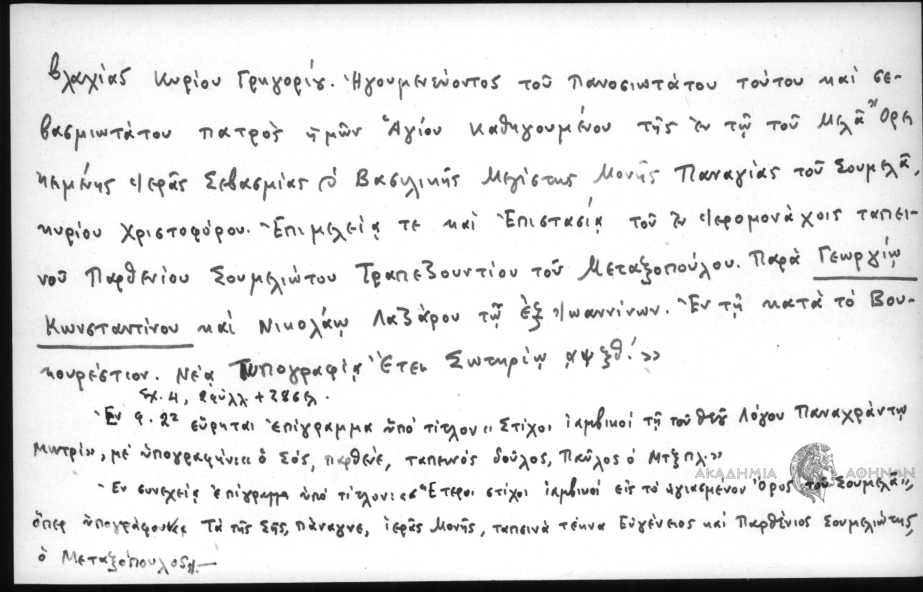 βλαχίας Κυρίου Γρηγορίȣ. Ἡγουμενεύοντος τοῦ Πανοσιωτάτου τούτου καὶ σε-
βασμιωτάτου πατρὸς ἡμῶν Ἁγίου Καθηγουμένου τῆς ἐν τῷ τοῦ Μελᾶ Ὄρει
κειμένης Ἱερᾶς Σεβασμίας Βασιλικῆς Μεγίστης Μονῆς Παναγίας τοῦ Σουμελᾶ,
κυρίου Χριστοφόρου. Ἐπιμελείᾳ τε καὶ Ἐπιστασίᾳ τοῦ ἐν Ἱερομονάχοις ταπει-
νοῦ Παρθενίου Σουμελιώτου Τραπεζουντίου τοῦ Μεταξοπούλου. Παρὰ Γεωργίῳ
Κωνσταντίνου καὶ Νικολάῳ Λαζάρου τῷ ἐξ Ἰωαννίνων. Ἐν τῇ κατὰ τὸ Βου-
κουρέστιον. Νέᾳ Τυπογραφίᾳ Ἔτει Σωτηρίῳ αψξθ'.»
Σχ. 4, 2 φύλλ + 286 σ.
Ἐν φ. 2ᵃ εὕρηται ἐπίγραμμα ὑπὸ τίτλον «Στίχοι ἰαμβικοί τῇ τοῦ Θεοῦ Λόγου Παναχράντῳ
Μητρί», μὲ ὑπογραφήν: «ὁ Σός, παρθένε, ταπεινὸς δοῦλος, Παῦλος ὁ Μτξπλ.»
ΑΚΑΔΗΜΙΑ ΑΘΗΝΩΝ
Ἐν συνεχείᾳ ἐπίγραμμα ὑπὸ τίτλον: «Ἕτεροι στίχοι ἰαμβικοί εἰς τὸ ἁγιασμένον Ὄρος τοῦ Σουμελᾶ»,
ὅπερ ὑπογράφουν: Τὰ τῆς Σῆς, πάναγνε, ἱερᾶς Μονῆς, ταπεινὰ τέκνα Εὐγένειος καὶ Παρθένιος Σουμελιώτης,
ὁ Μεταξόπουλος».—